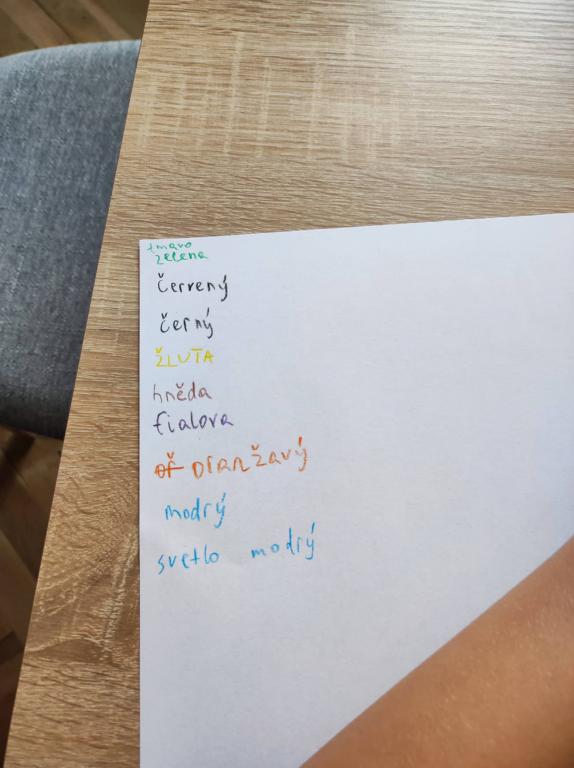 tmavo
zelena
červený
černý
ŽLUTA
hněda
fialova
oř oranžavý
modrý
svetlo modrý